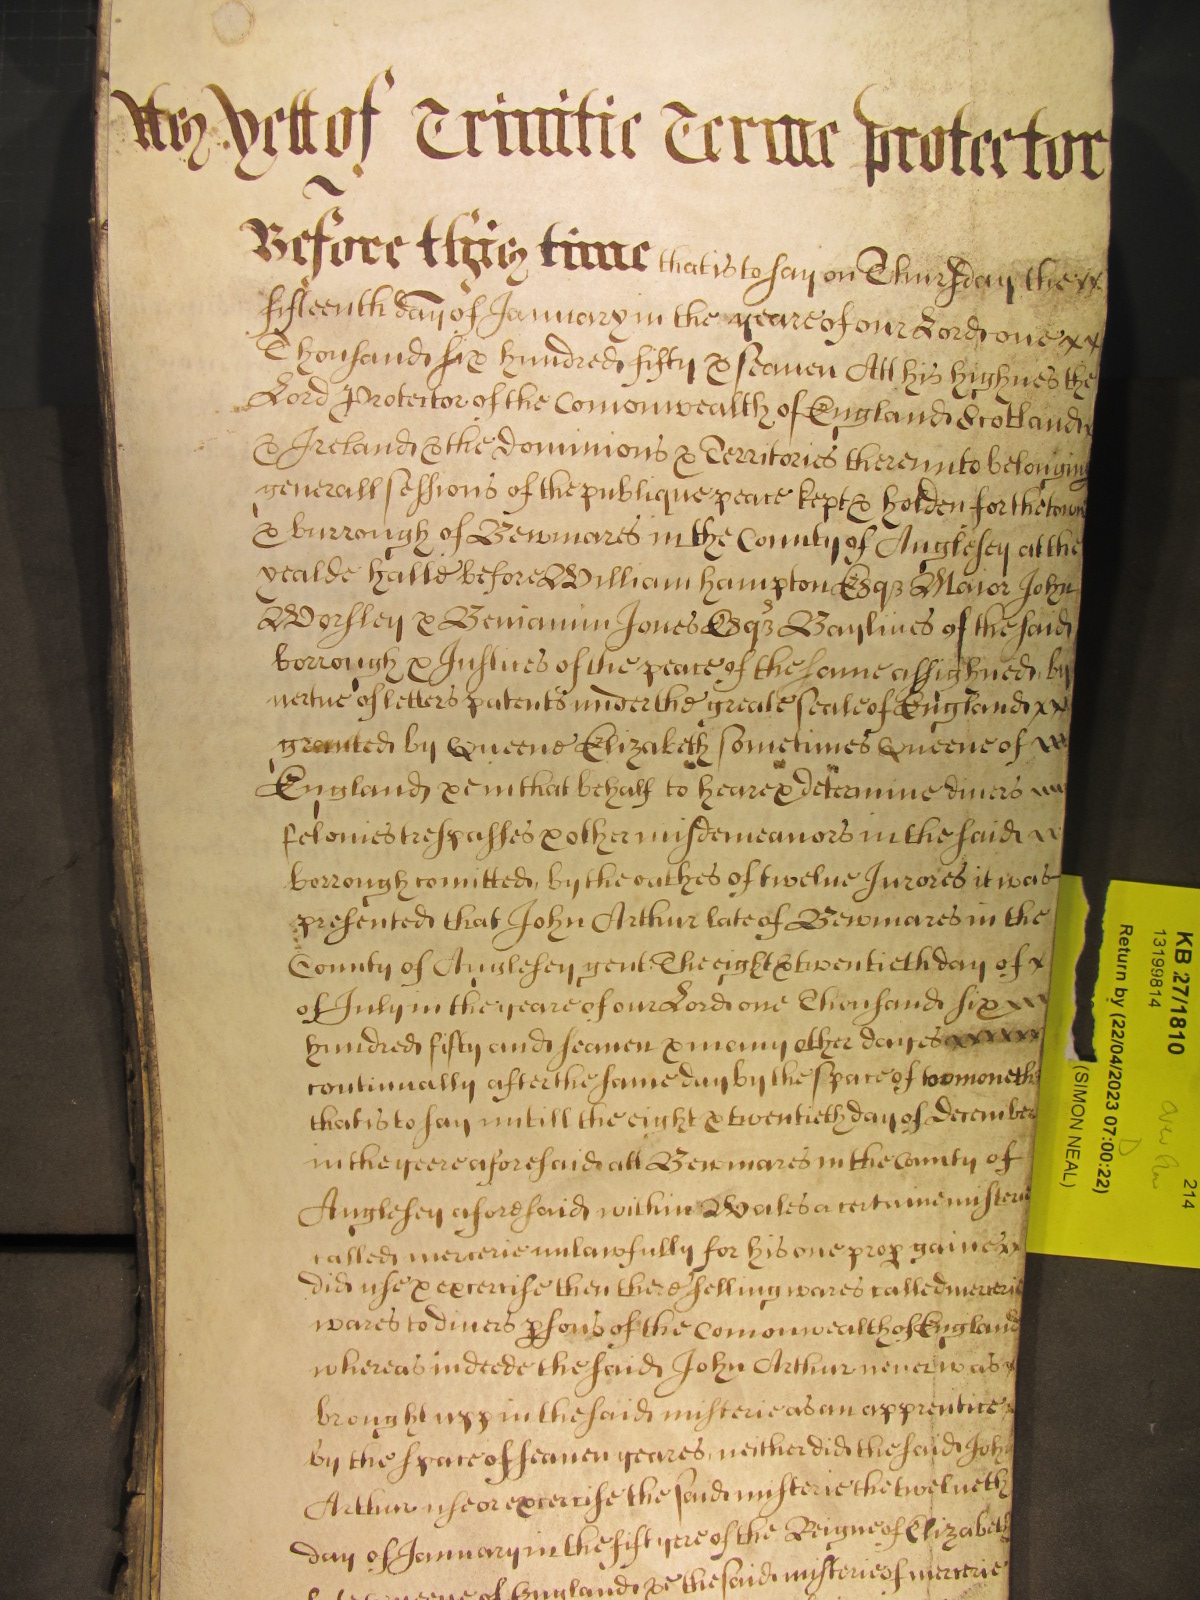 Yett of Trinitie Terme Protector
Before this time that is to say on Thursday the xx
fifteenth day of January in the yeare of our Lord one xx
Thousand six hundred fifty & seaven Att his highnes the
Lord Protector of the Comonwealth of England Scotland
& Ireland & the Dominions & Territories thereunto belonging
generall sessions of the publique peace kept & holden for the town
& burrough of Bewmares in the County of Anglesey at the
yealde halle before William Hampton Esqr Maior John
Worsley & Beniamin Jones Esqr Baylives of the said
borrough & Justices of the peace of the same assighned by
vertue of letters patents under the greate seale of England xx
granted by Queene Elizabeth sometimes Queene of xx
England &c in that behalf to heare & determine divers
felonies trespasses & other misdemeanors in the said
borrough comitted, by the oathes of twelve Jurores it was
presented that John Arthur late of Bewmares in the
County of Anglesey gent The eight & twentieth day of x
of July in the yeare of our Lord one Thousand six xxx
hundred fifty and seaven & many other dayes xxxxxx
continually after the same day by the space of moneths
that is to say untill the eight & twentieth day of December
in the yeere aforesaid att Bewmares in the County of
Anglesey aforesaid within Wales a certaine misterie
called mercerie unlawfully for his one prop gaine xx
did use & excercise then there selling wares called mercerie
wares to divers psons of the Comonwealth of England
whereas indeede the said John Arthur never was x
brought upp in the said misterie as an apprentice
by the space of seaven yeares, neither did the said John
Arthur use or excercise the said misterie the twelueth
day of January in the fift yere of the Reigne of Elizabeth
late Queene of England &c the said misterie of mercerie
KB 27/1810
13199814
214
Return by (22/04/2023 07:00:22)
(SIMON NEAL)